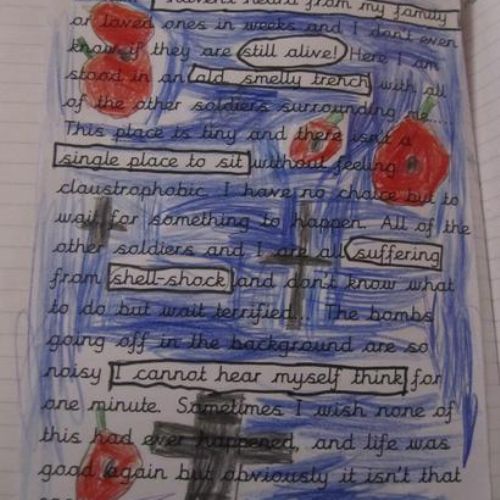 haven't heard from my family
or loved ones in weeks and I don't even
know if they are still alive! Here I am
stood in an old smelly trench with all
of the other soldiers surrounding me....
This place is tiny and there isn't a
single place to sit without feeling
claustrophobic. I have no choice but to
wait for something to happen. All of the
other soldiers and I are all suffering
from shell-shock and don't know what
to do but wait terrified... The bombs
going off in the background are so
noisy I cannot hear myself think for
one minute. Sometimes I wish none of
this had ever happened, and life was
good again but obviously it isn't that